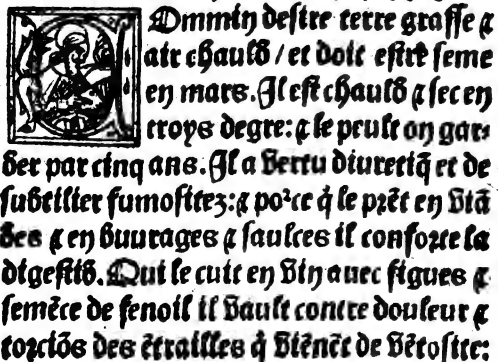 COmmin desire terre grasse ⁊
air chauld / et doit estre seme
en mars. Il est chauld ⁊ sec en
troys degre: ⁊ le peult on gar⸗
der par cinq ans. Il a vertu diuretiq̃ et de
subtilier fumositez: ⁊ poᷣce q̃ le prẽt en viã
des ⁊ en buurages ⁊ saulces il conforte la
digestiõ. Qui le cuit en vin auec figues ⁊
semẽce de fenoil il vault contre douleur ⁊
torciõs des ẽtrailles q̃ viẽnẽt de vẽtosite: